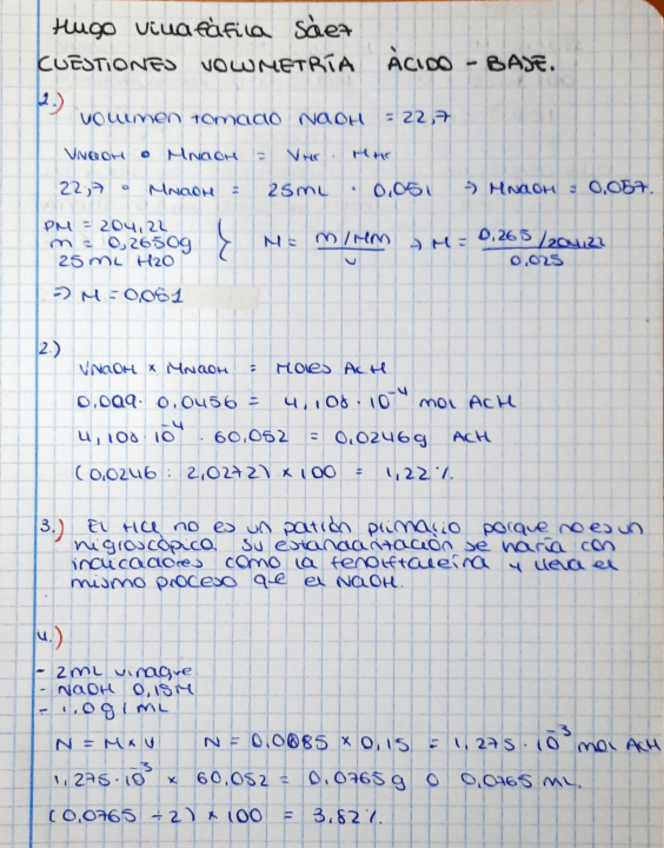 Hugo Villafáfila Sáez
CUESTIONES VOLUMETRÍA ÀCIDO - BASE.
1.)
Volumen tomado NaOH = 22,7
VNaOH • MNaOH = VHF · MHF
22,7 • MNaOH = 25mL · 0,051 ⇒ MNaOH = 0,057.
PM = 204,22
m = 0,2650g
25 mL H2O
} M = (m/Mm) / v → M = (0,265/204,22) / 0,025
⇒ M = 0,051
2.)
VNaOH x MNaOH = Moles AcH
0,009 · 0,0456 = 4,108 · 10⁻⁴ mol AcH
4,108 · 10⁻⁴ · 60,052 = 0,0246g AcH
(0,0246 : 2,0272) x 100 = 1,22 %.
3.) El HCl no es un patrón primario porque no es un
higroscópico. Su estandarización se haría con
indicadores como la fenolftaleína y lleva el
mismo proceso que el NaOH.
4.)
- 2mL vinagre
- NaOH 0,15M
- 1.0 g/mL
N = M x V N = 0.0085 x 0,15 = 1,275 · 10⁻³ mol AcH
1,275 · 10⁻³ x 60,052 = 0.0765g o 0,0765 mL.
(0,0765 ÷ 2) x 100 = 3,82 %.